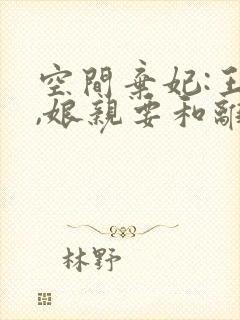 空間棄妃:王
,娘親要和離
林野